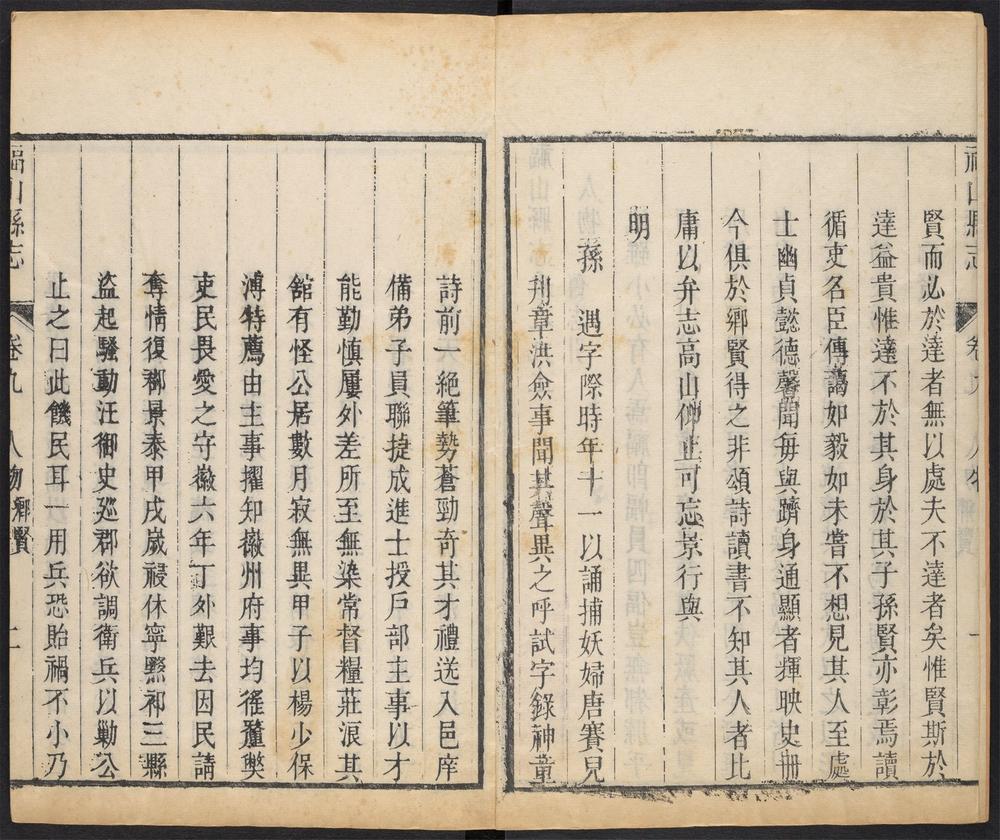 福山縣志
賢而必於達者無以處夫不達者矣惟賢斯於
達益貴惟達不於其身於其子孫賢亦彰焉讀
循吏名臣傳藹如毅如未嘗不想見其人至處
士幽貞懿德馨聞每與躋身通顯者輝映史冊
今俱於鄉賢得之非頌詩讀書不知其人者比
庸以弁志高山仰止可忘景行與
明
孫　遇字際時年十一以誦捕妖婦唐賽兒
刑章洪僉事聞其聲異之呼試字錄神童
詩前六絕筆勢蒼勁奇其才禮送入邑庠
備弟子員聯捷成進士授戶部主事以才
能勤慎屢外差所至無染常督糧莊浪其
舘有怪公居數月寂無異甲子以楊少保
溥特薦由主事擢知徽州府事均徭釐獘
吏民畏愛之守徽六年丁外艱去因民請
奪情復郡景泰甲戌歲祲休寧黟祁三縣
盜起騷動汪御史廵郡欲調衛兵以勦公
止之曰此饑民耳一用兵恐貽禍不小乃
福山縣志　卷九　人物 鄉賢　二